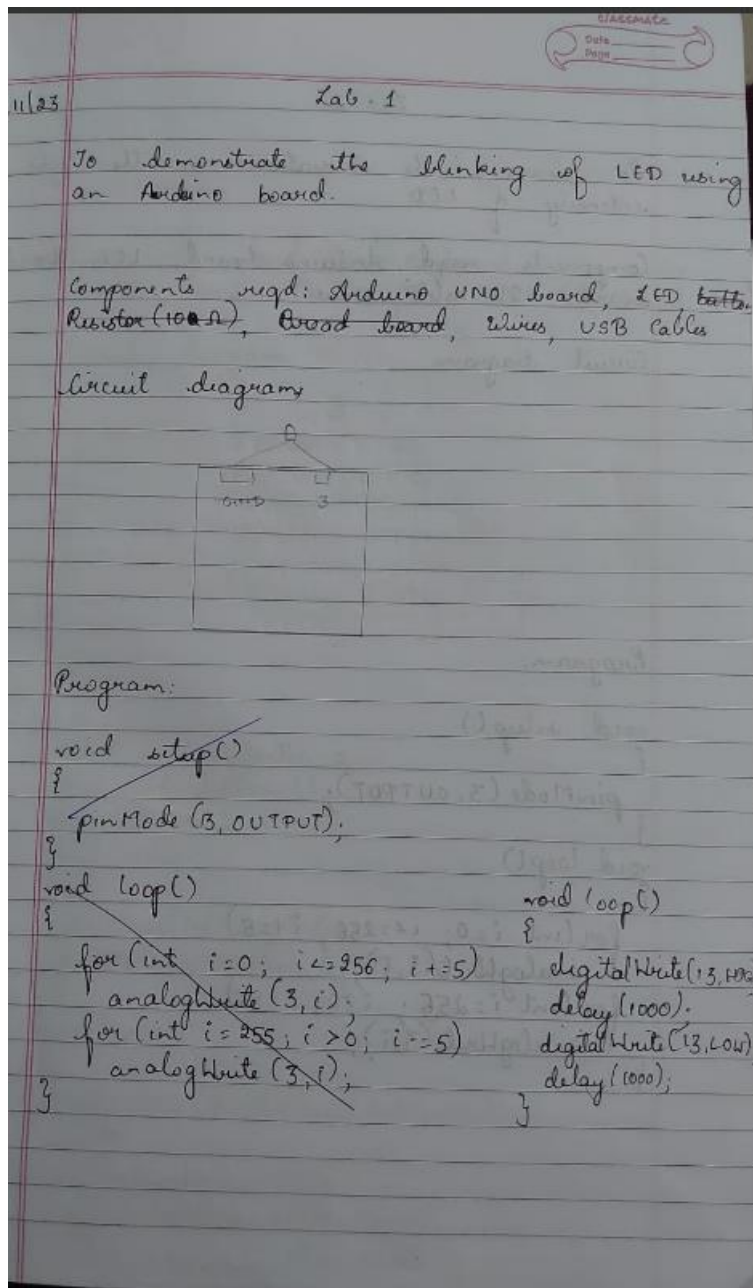 classmate
Date
Page
11/23
Lab. 1
To demonstrate the blinking of LED using
an Arduino board.
Components reqd: Arduino UNO board, LED
Resistor (10 Ω), Bread board, Wires, USB Cables
Circuit diagram
GND 3
Program:
void setup()
{
pinMode (3, OUTPUT);
}
void loop()
{
for (int i=0; i<=256; i+=5)
analogWrite (3, i);
for (int i=255; i>0; i-=5)
analogWrite (3, i);
}
void loop()
{
digitalWrite (13,
delay (1000);
digitalWrite (13, LOW)
delay (1000);
}